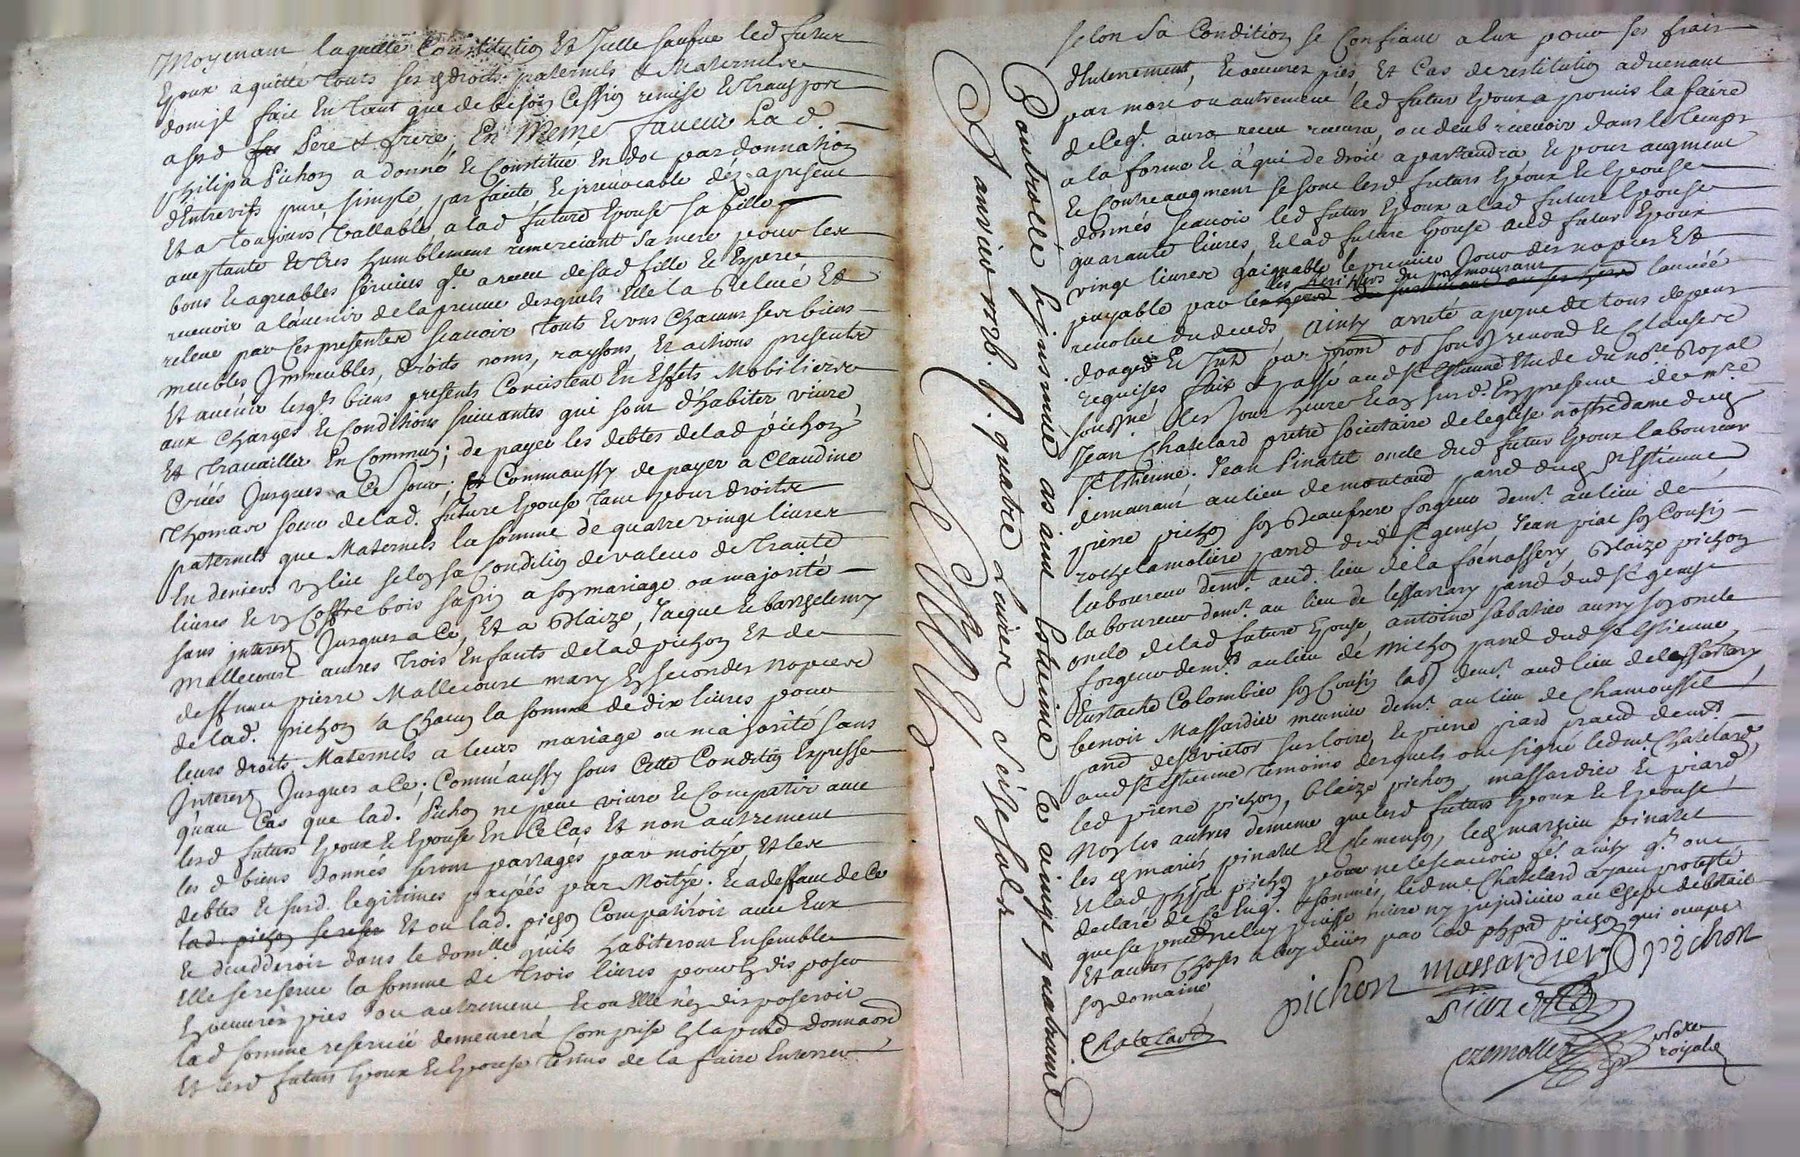 Moyenant laquelle Constitution Et Icelle sauf que led futur
Epoux a quitté touts ses droits paternels & Maternels
dont Jl fait En tant que de besoin Cession remise & transport
a sesd Pere & frere, En Meme faveur Lad.
philipa Pichon a donné & Constitué En dot par donnation
d'Entrevifs pure simple, parfaite & irrevocable dés a present
Et a toujours Vallable, a lad future Epouse sa fille
aceptante Et tres humblement remerciant sa mere pour les
bons & agreables services q.le a receu de sad fille & Espere
recevoir a l'avenir de la preuve desquels Elle la releve Et
releve par Ces presentes scavoir touts & uns Chacuns ses biens
meubles Immeubles, droits noms, raysons, Et actions presents
Et avenir lesq.s biens presents Concistent En Effets Mobiliers
aux Charges & Conditions suivantes qui sont d'habiter vivre
Et travailler En Commun; de payer les debtes de lad pichon
Criés Jusques a Ce Jour; Comm aussy de payer a Claudine
Thomas soeur de lad. future Epouse tant pour droits
paternels que Maternels la somme de quatre vingt livres
En deniers un lit selon sa Condition de valeur de trante
livres & un Coffre bois sapin a son mariage ou majorité
sans interest Jusques a Ce, Et a Blaize, Jacque & barthelemy
Mallecourt autres trois Enfants de lad pichon Et de
deffunt pierre Mallecourt mary En secondes nopces
de lad. pichon a Chacun la somme de dix livres pour
leurs droits Maternels a leurs mariage ou majorité sans
Interest Jusques a Ce; Comm'aussy sous Cette Condition Expresse
qu'au Cas que lad. Pichon ne peut vivre & Compatir avec
lesd futurs Epoux & Epouse En Ce Cas Et non autrement
les d biens donnés seront partagés par moitye, Et les
debtes & surd. legitimes payéés par Moitye. & a deffaut de Ce
lad. pichon se reser Et ou lad. pichon Compatiroit avec Eux
& decedderoit dans le dom.lle quils habiteront Ensemble
Elle se reserve la somme de trois livres pour En disposer
En oeuvres pies ou autrement & ou Elle n'en disposeroit
lad somme reservéé demeurera Comprise En la pnte donnaon
Et lesd futurs Epoux & Epouse tenus de la faire Enterrer
selon sa Condition se Confiant a Eux pour ses frais
d'Enterrement, & oeuvres pies, Et Cas de restitution advenant
par mort ou autrement led futur Epoux a promis la faire
de Ce q.l aura receu recevra, ou deub recevoir dans le temps
a la forme & a qui de droit apartiendra & pour augment
& Contre augment se sont lesd futurs Epoux & Epouse
donnés scavoir led futur Epoux a lad future Epouse
quarante livres, & lad future Epouse aud futur Epoux
vingt livres gaignable le premier Jour des nopces Et
payable par les heritiers du premourant lannéé
revolue du decéds Ainsy arreté a peyne de tous depens
domages & Int par prom obon soub renond & Clauses
requises fait & passé aud St Estienne Etude du no.re Royal
soussigné les Jour heure & an surd. En presence de m.re
Jean Chatelard pretre societaire de leglise nostre dame dud
St Etienne. Jean Pinatel oncle dud futur Epoux laboureur
demeurant au lieu de montaud parr.e dud St Estienne
pierre pichon son Beaufrere forgeur dem.t au lieu de
roche la moliere parr.e dud St genest Jean piat son Cousin
laboureur dem.t aud. lieu de la foenassery Blaize pichon
laboureur dem.t au lieu de lessartary parr.e dud St genest
oncle de lad future Epouse antoine sabatier aussy son oncle
forgeur dem.t au lieu de michon parr.e dud St Estienne
Eustache Colombier son Cousin lab.r dem.t aud lieu de lessartary
benoit Massardier meunier dem.t au lieu de Chamousset
parr.e de St victor sur loire, & pierre piard praud dem.t
aud St Estienne temoins desquels ont signé led m.re Chatelard
led pierre pichon, blaize pichon massardier & piard
Non les autres de meme que lesd futurs Epoux & Epouse
les mariés pinatel & Clemenson, led mathieu pinatel
Et lad phpa pichon pour ne le scavoir q.s ainsy q.ls ont
declaré de Ce Enq.s & sommés, led m.e Chatelard ayant protesté
que sa pnce ne luy puisse nuire ny prejudicier au Chept de betail
Et autres Choses a luy deües par lad phpa pichon qui occupe
son domaine
Chatelard
pichon massardier pichon
piard
Ezemollier notaire
royal
Controllé & insinué as aint Estienne le vingt quatrieme
Janvier 1728. R. quatre Livres seize sols